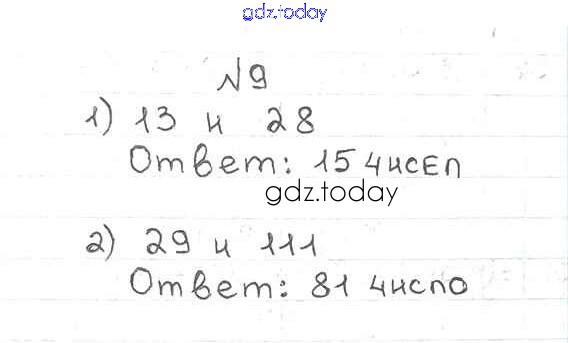 gdz.today
№9
1) 13 и 28
Ответ: 15 чисел
gdz.today
2) 29 и 111
Ответ: 81 число